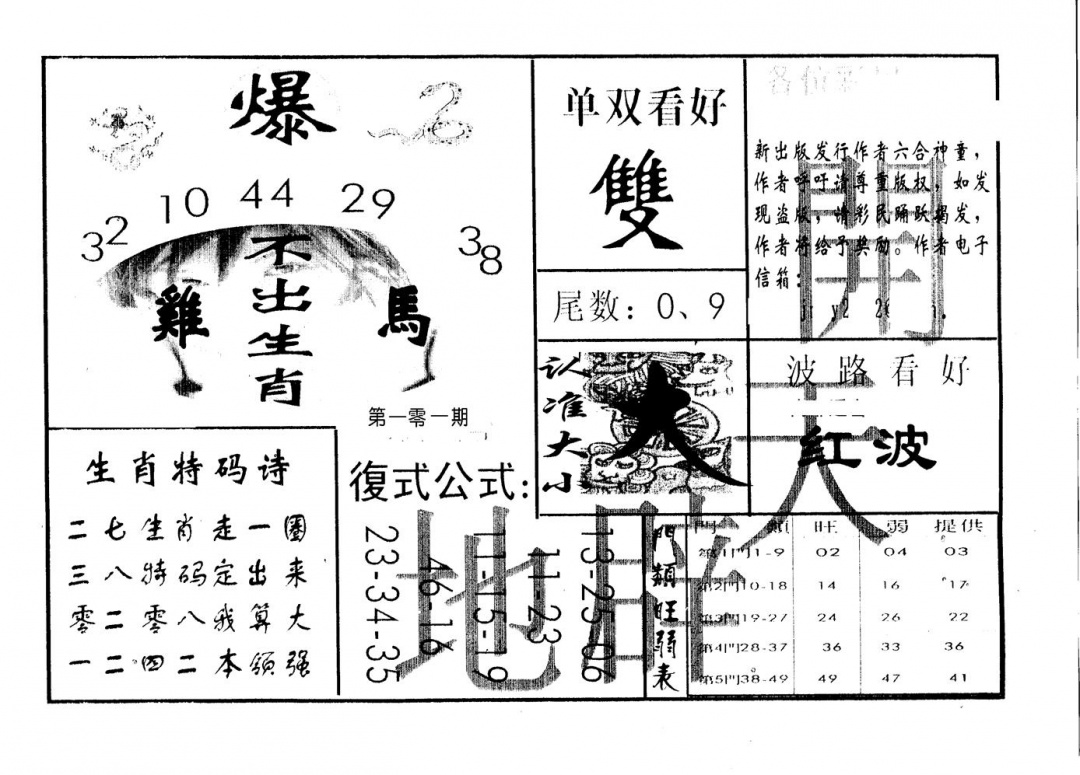 爆
32 10 44 29 38
不出生肖
雞 馬
第一零一期
单双看好
雙
尾数：0、9
新出版发行作者六合神童，
作者呼吁请尊重版权，如发
现盗版，请彩民踊跃揭发，
作者将给予奖励。作者电子
信箱：
认准大小
大
波路看好
紅波
生肖特码诗
二七生肖走一圈
三八特码定出来
零二零八我算大
一二四二本领强
復式公式：
23-34-35
46-16
11-15-19
11-23
13-25-06
門類旺弱表
門類 旺 弱 提供
第1門1-9 02 04 03
第2門10-18 14 16 17
第3門19-27 24 26 22
第4門28-37 36 33 36
第5門38-49 49 47 41
開
天
地